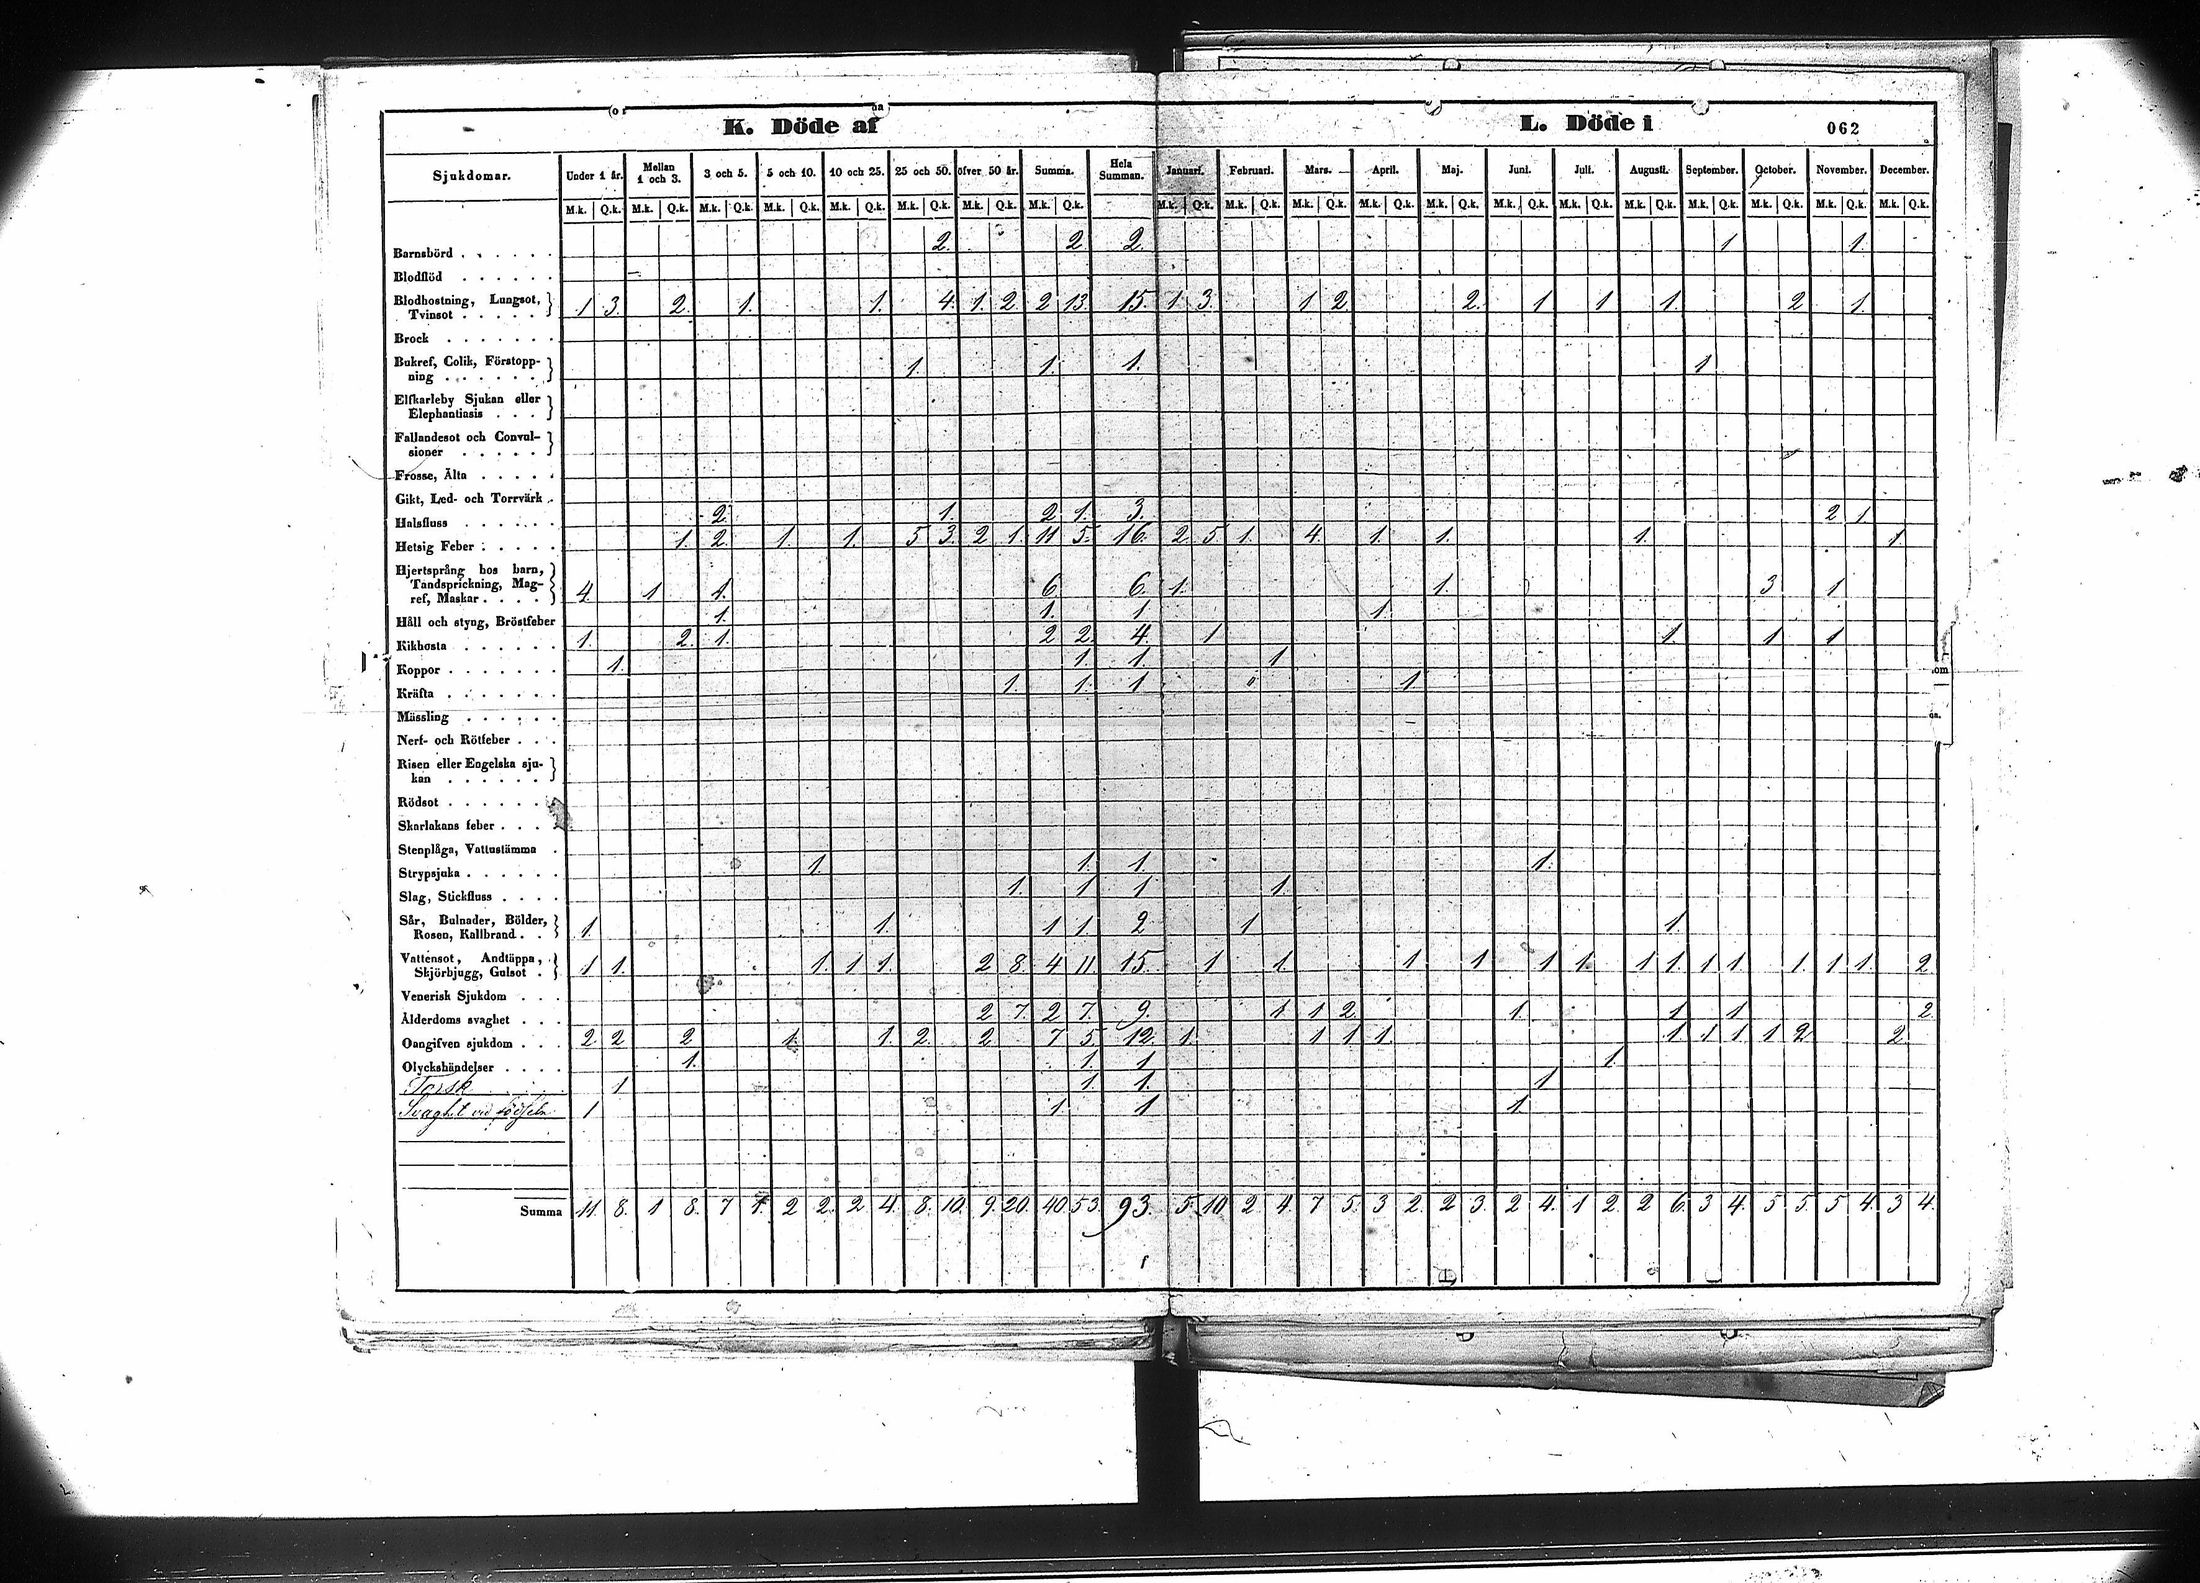 K. Döde af L. Döde i 062
Sjukdomar. Under 1 år. Mellan 1 och 3. 3 och 5. 5 och 10. 10 och 25. 25 och 50. öfver 50 år. Summa. Hela Summan. Januari. Februari. Mars. April. Maj. Juni. Juli. Augusti. September. October. November. December.
M.k. Q.k. M.k. Q.k. M.k. Q.k. M.k. Q.k. M.k. Q.k. M.k. Q.k. M.k. Q.k. M.k. Q.k. M.k. Q.k. M.k. Q.k. M.k. Q.k. M.k. Q.k. M.k. Q.k. M.k. Q.k. M.k. Q.k. M.k. Q.k. M.k. Q.k. M.k. Q.k. M.k. Q.k. M.k. Q.k.
Barnsbörd 2. 2 2 1 1.
Blodflöd
Blodhostning, Lungsot,
Tvinsot 1 3. 2. 1. 1. 4. 1. 2. 2 13. 15. 1 3. 1 2 2. 1 1 1. 2 1.
Brock
Bukref, Colik, Förstopp-
ning 1. 1. 1. 1
Elfkarleby Sjukan eller
Elephantiasis
Fallandesot och Convul-
sioner
Frosse, Älta
Gikt, Led- och Torrvärk
Halsfluss 2. 1. 2 1. 3. 2 1.
Hetsig Feber 1. 2. 1. 1. 5 3. 2 1. 11 5. 16. 2 5 1. 4. 1. 1. 1. 1.
Hjertsprång hos barn,
Tandsprickning, Mag-
ref, Maskar 4. 1 1. 6. 6. 1. 1. 3 1
Håll och styng, Bröstfeber 1. 1. 1 1.
Kikhosta 1. 2. 1. 2 2. 4. 1 1. 1 1
Koppor 1. 1. 1. 1
Kräfta 1. 1. 1 1.
Mässling
Nerf- och Rötfeber
Risen eller Engelska sju-
kan
Rödsot
Skarlakans feber
Stenplåga, Vattustämma
Strypsjuka 1. 1. 1. 1.
Slag, Stickfluss 1. 1 1 1.
Sår, Bulnader, Bölder,
Rosen, Kallbrand 1. 1. 1 1. 2 1 1
Vattensot, Andtäppa,
Skjörbjugg, Gulsot 1 1. 1. 1 1. 2 8. 4 11 15. 1 1. 1 1 1 1 1 1. 1 1 1. 1 1. 2
Venerisk Sjukdom
Ålderdoms svaghet 2 7. 2 7. 9. 1 1 2 1 1 1 2
Oangifven sjukdom 2 2 2 1. 1. 2. 2 7 5. 12. 1. 1 1 1 1 1 1 1 2 2.
Olyckshändelser 1. 1. 1 1.
Torsk 1 1. 1. 1
Svaghet vid födseln 1 1 1 1
Summa 11. 8. 1 8. 7 1. 2 2. 2 4. 8. 10. 9. 20. 40. 53. 93. 5. 10 2 4. 7 5. 3 2. 2 3. 2 4. 1 2. 2 6. 3 4. 5 5. 5 4. 3 4.